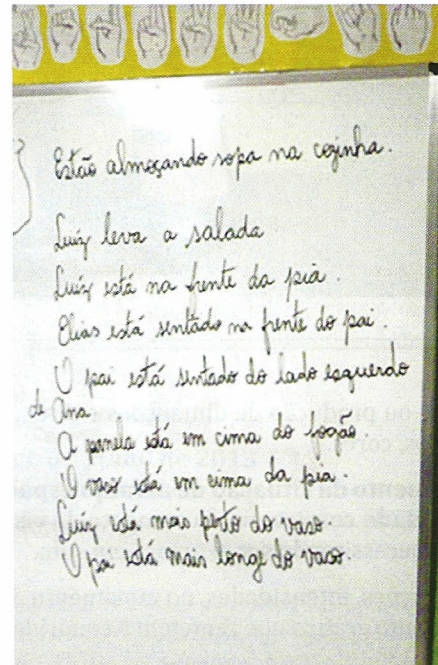 Estão almoçando sopa na cozinha.
Luiz leva a salada
Luiz está na frente da pia.
Elias está sentado na frente do pai.
O pai está sentado do lado esquerdo
de Ana
A panela está em cima do fogão
O vaso está em cima da pia
Luiz está mais perto do vaso
O pai está mais longe do vaso.